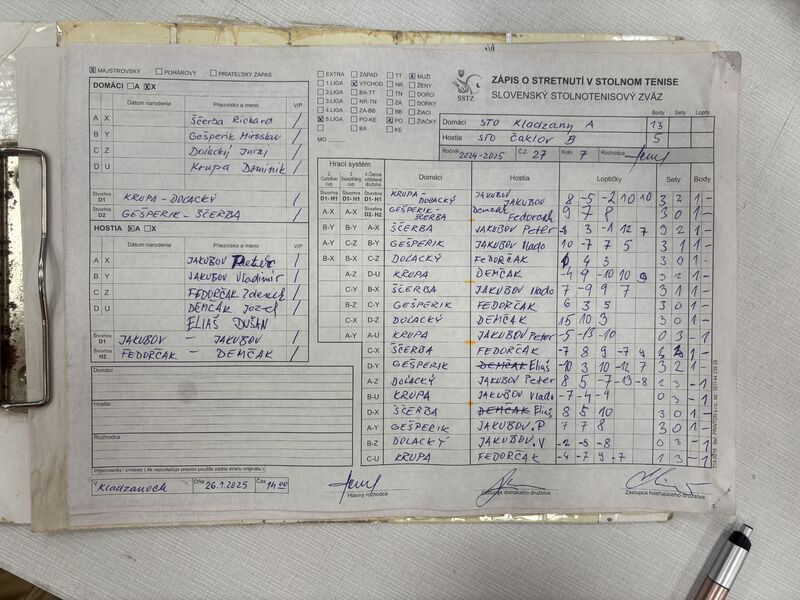 ZÁPIS O STRETNUTÍ V STOLNOM TENISE
SLOVENSKÝ STOLNOTENISOVÝ ZVÄZ
SSTZ
X MAJSTROVSKÝ POHÁROVÝ PRIATEĽSKÝ ZÁPAS
EXTRA ZÁPAD TT X MUŽI
1.LIGA X VÝCHOD NR ŽENY
2.LIGA BA-TT TN DORCI
3.LIGA NR-TN ZA DORKY
4.LIGA ZA-BB BB ŽIACI
X 5.LIGA PO-KE X PO ŽIAČKY
BA KE
MO
Domáci STO Kladzany A 13
Hostia STO Čaklov B 5
Body Sety Lopty
Ročník 2024-2025 Č.Z. 27 Kolo 7 Rozhodca
DOMÁCI A X X
Dátum narodenia Priezvisko a meno V/P
A X Ščerba Richard /
B Y Gešperik Miroslav /
C Z Dolacký Juraj /
D U Krupa Dominik /
Štvorhra D1 KRUPA - DOLACKÝ /
Štvorhra D2 GEŠPERIK - ŠČERBA /
HOSTIA X A X
Dátum narodenia Priezvisko a meno V/P
A X JAKUBOV Peter /
B Y JAKUBOV Vladimír /
C Z FEDORČAK Zdenek /
D U DEMČAK Jozef /
ELIÁŠ DUŠAN
Štvorhra D1 JAKUBOV - JAKUBOV /
Štvorhra H2 FEDORČAK - DEMČAK /
Domáci
Hostia
Rozhodca
Pripomienky / protesty ( Ak nepostačuje priestor použite zadnú stranu originálu )
Hrací systém
Domáci Hostia Loptičky Sety Body
KRUPA - DOLACKÝ JAKUBOV JAKUBOV 8 -5 -2 10 10 3 2 1 -
A-X A-X GEŠPERIK - ŠČERBA Demčak Fedorcak 9 7 8 3 0 1 -
B-Y B-Y A-Y ŠČERBA JAKUBOV Peter 3 -1 12 7 3 1 -
A-Y C-Z B-X GEŠPERIK JAKUBOV Vlado 10 -7 7 5 3 1 1 -
B-X B-X C-Z DOLACKÝ FEDORČAK 4 3 3 0 1 -
A-Z D-U KRUPA DEMČAK -4 9 -10 10 9 3 2 1 -
C-Y B-X ŠČERBA JAKUBOV Vlado 7 -9 9 7 3 1 1 -
B-Z C-Y GEŠPERIK FEDORČAK 6 3 5 3 0 1 -
C-X D-Z DOLACKÝ DEMČAK 15 10 3 3 0 1 -
A-Y A-U KRUPA JAKUBOV Peter -5 -13 -10 0 3 - 1
C-X ŠČERBA FEDORČAK -7 8 9 -7 3 2 1 -
D-Y GEŠPERIK Eliáš -10 3 10 -12 7 3 2 1 -
A-Z DOLACKÝ JAKUBOV Peter 8 5 -7 -13 -8 2 3 - 1
B-U KRUPA JAKUBOV Vlado -7 -4 -9 0 3 - 1
D-X ŠČERBA Eliáš 8 5 10 3 0 1 -
A-Y GEŠPERIK JAKUBOV.P 7 7 8 3 0 1 -
B-Z DOLACKÝ JAKUBOV.V -2 -8 0 3 - 1
C-U KRUPA FEDORČAK -4 -7 9 -7 1 3 - 1
V Kladzanoch Dňa 26.1.2025 Čas 14 00
Hlavný rozhodca Zástupca domáceho družstva Zástupca hosťujúceho družstva